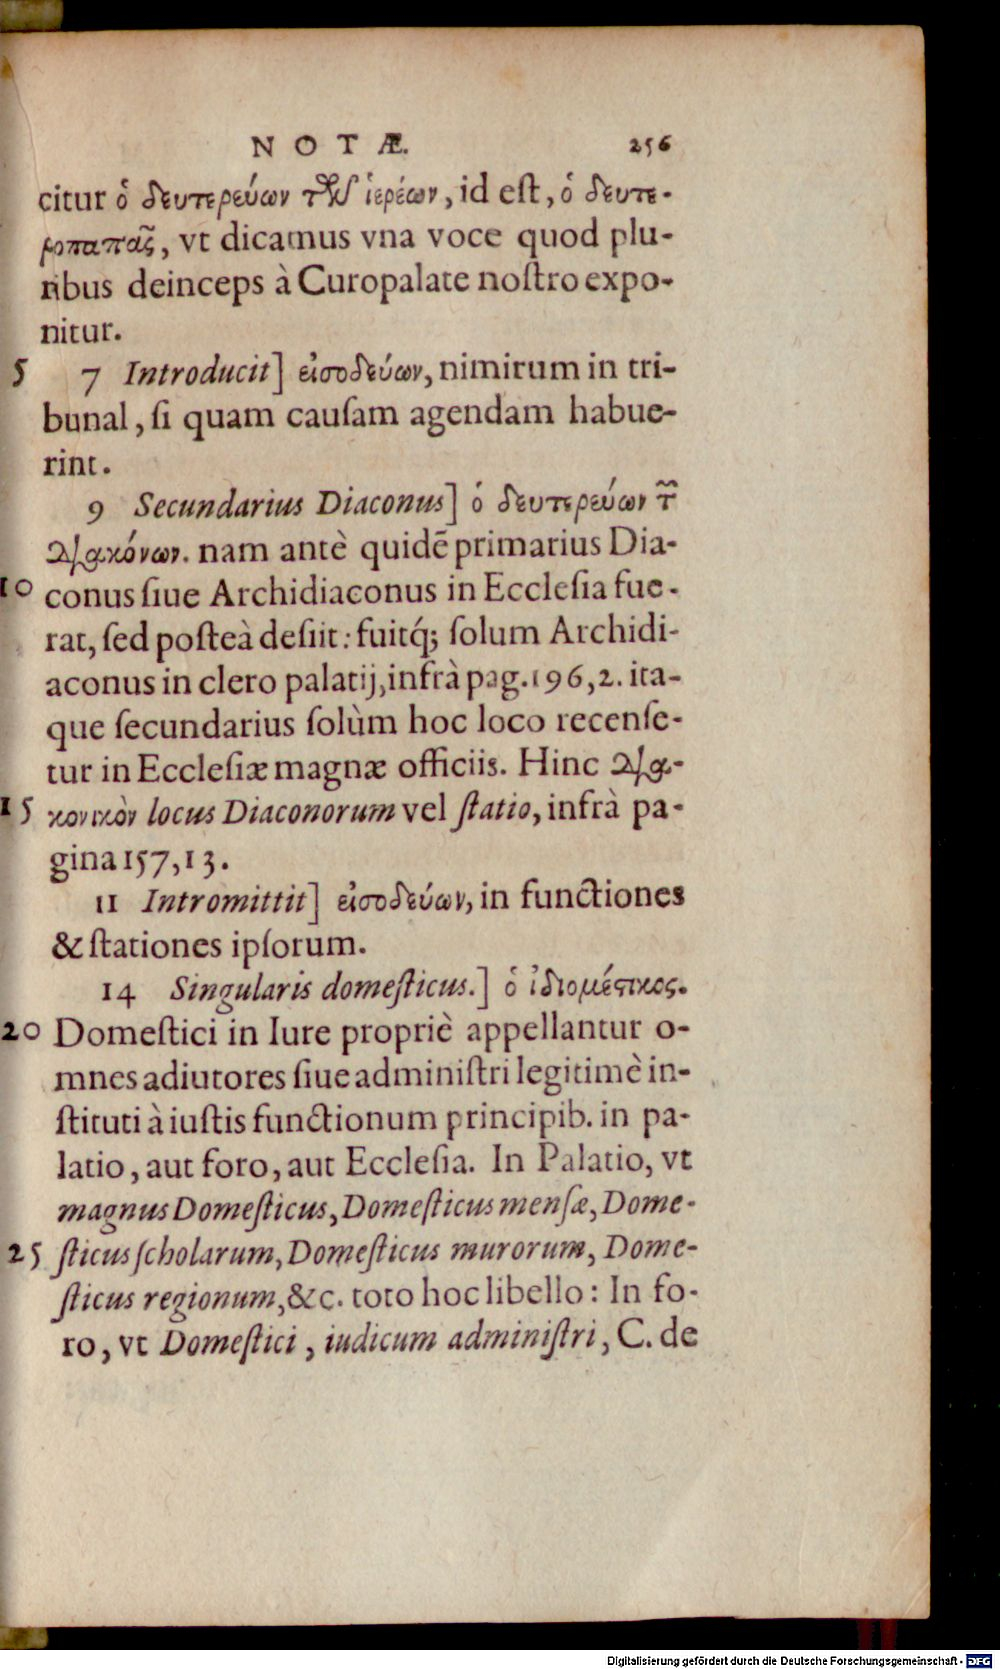 NOTÆ. 256
citur ὁ δευτερεύων τῶν ἱερέων, id eſt, ὁ δευτε-
ροπαπᾶς, vt dicamus vna voce quod plu-
ribus deinceps à Curopalate noſtro expo-
nitur.
5 7 Introducit] εἰσοδεύων, nimirum in tri-
bunal, ſi quam cauſam agendam habue-
rint.
9 Secundarius Diaconus] ὁ δευτερεύων τῶν
διακόνων. nam antè quidē primarius Dia-
10 conus ſiue Archidiaconus in Eccleſia fue-
rat, ſed poſteà deſiit: fuitq́; ſolum Archidi-
aconus in clero palatij, infrà pag. 196, 2. ita-
que ſecundarius ſolùm hoc loco recenſe-
tur in Eccleſiæ magnæ officiis. Hinc δια-
15 κονικὸν locus Diaconorum vel ſtatio, infrà pa-
gina 157, 13.
11 Intromittit] εἰσοδεύων, in functiones
& ſtationes ipſorum.
14 Singularis domeſticus.] ὁ ἰδιομέστικος.
20 Domeſtici in Iure propriè appellantur o-
mnes adiutores ſiue adminiſtri legitimè in-
ſtituti à iuſtis functionum principib. in pa-
latio, aut foro, aut Eccleſia. In Palatio, vt
magnus Domeſticus, Domeſticus menſæ, Dome-
25 ſticus ſcholarum, Domeſticus murorum, Dome-
ſticus regionum, &c. toto hoc libello: In fo-
ro, vt Domeſtici, iudicum adminiſtri, C. de
Digitalisierung gefördert durch die Deutsche Forschungsgemeinschaft - DFG